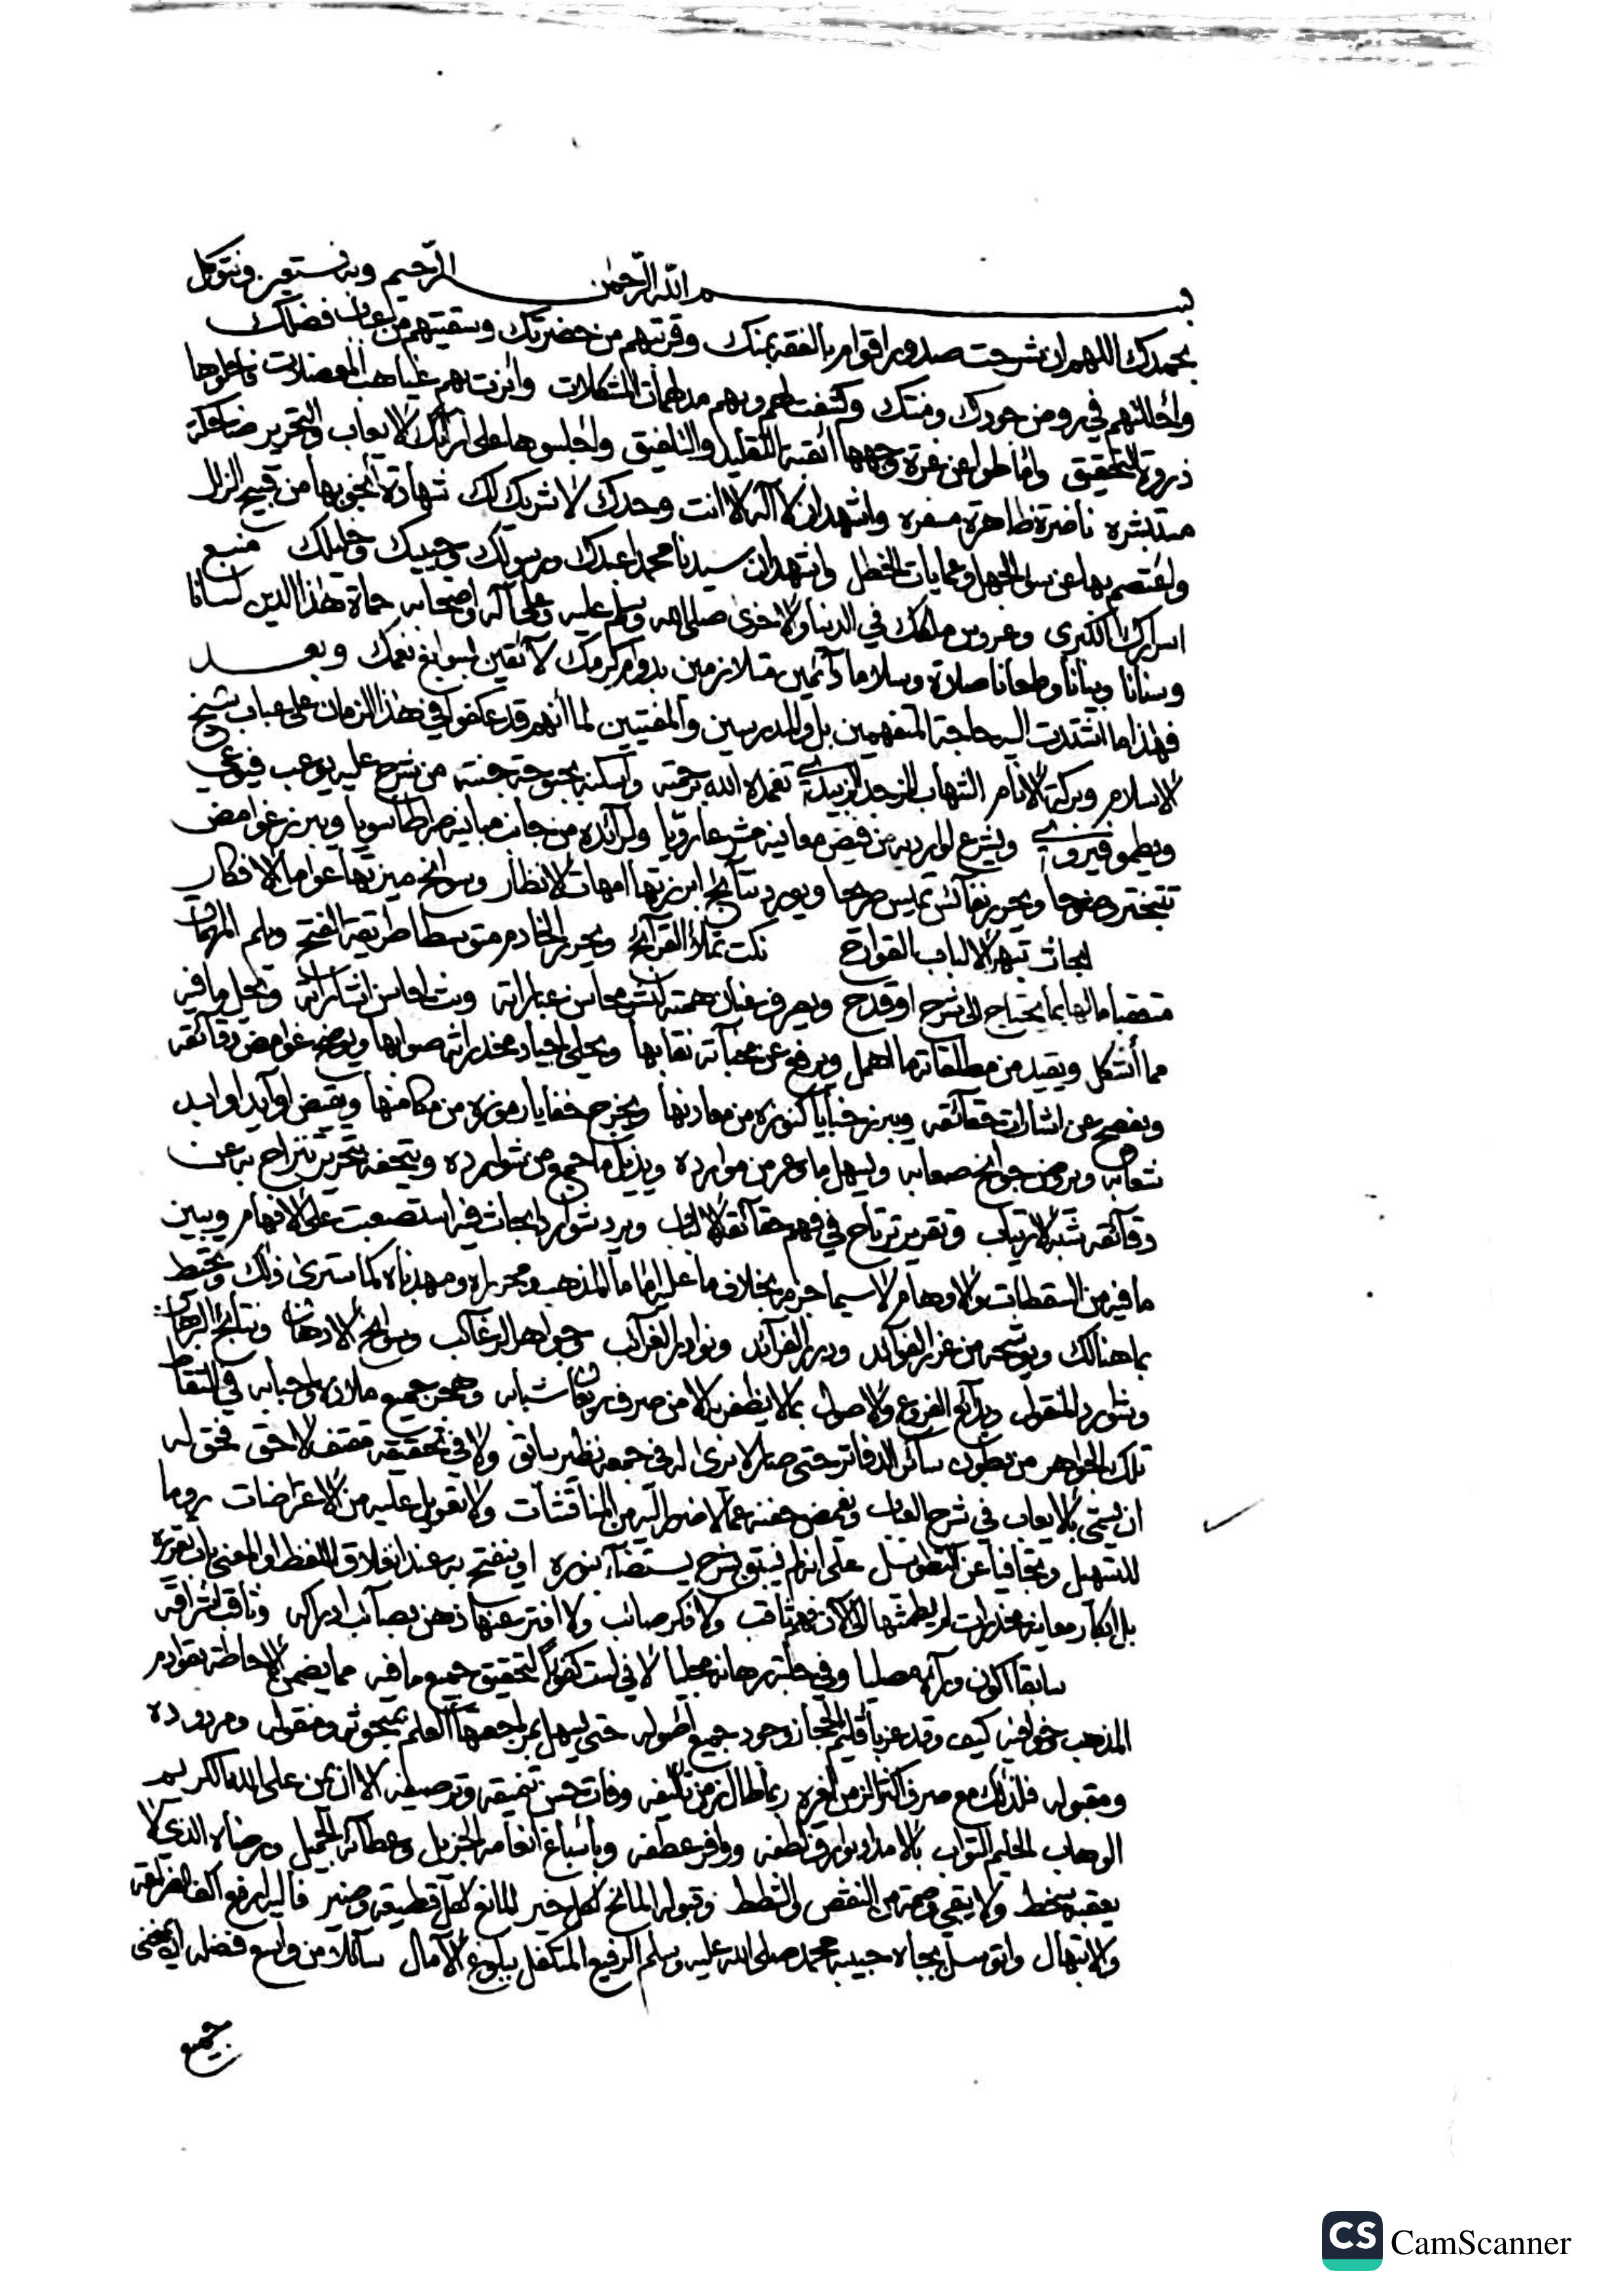 بسم الله الرحمن الرحيم وبه نستعين ونتوكل
نحمدك اللهم ان شرحت صدور اقوام بالفقه بمنك وقربتهم من حضرتك وسقيتهم من عباب فضلك
واحللتهم في روض جودك ومنتك وكشفت لهم وبهم مدلهمات المشكلات وانرت بهم غياهب المعضلات
ذروة التحقيق واماطوا عن غرة وجهها اتقبة التقليد والتلفيق واجلسوها على ارائك الايعاب والتحرير ضاحكة
مستبشره ناضرة ظاهرة مسفره واشهد ان لا اله الا انت وحدك لا شريك لك شهادة انجو بها من قبيح الزلل
واعتصم بها عن سوء الجهل وعمايات الخطل واشهد ان سيدنا محمدا عبدك ورسولك وحبيبك وخليلك منبع
اسرارك الكبرى وعروس مملكتك في الدنيا والاخرى صلى الله وسلم عليه وعلى آله واصحابه حماة هذا الدين لسانا
وسنانا وبيانا وطعانا صلاة وسلاما دائمين متلازمين بدوام كرمك لائقين بسوابغ نعمك وبعد
فهذا ما اشتدت اليه حاجة المتفهمين بل والمدرسين والمفتيين لما أنهم قد عكفوا في هذا الزمان على عباب شيخ
الاسلام وبركة الانام الشهاب المزجد الزبيدي تغمده الله برحمته واسكنه بحبوحة جنته من شرح عليه يوعب فيوعي
ويطمو فيروي ويشرع لوارديه من فيض معانيه مشرعا رويا ولرائده من جانب مبانيه صراطا سويا ويبرز غوامض
تتبختر وضوحا ويحرر نفائس تميس مرحا ويورد نتائج ابرزتها امهات الانظار وسوانح ميزتها عوامل الافكار
ابحاث تبهر الالباب القوارح نكت تملأ القرائح ويحرر الخادم متوسطا طريقة الفتح ويلم المهمات
متعقبا مالها بما يحتاج الى شرح او قدح ويصرف عنان همته لنشر محاسن عباراته وبث احاسن اشاراته وبحل ما فيه
مما أشكل وتقييد من مطلقاته ما اهمل ويرفع عن مخبآته نقابها ويحلي اجياد مخدراته صوابها ويوضح غوامض دقائقه
ويفصح عن اشارات حقائقه ويبرز خبايا كنوزه من معادنها ويخرج خفايا رموزه من مكامنها ويقتنص اوابد اوابد
شعابه ويروض جوامح صعابه ويسهل ما وعر من موارده ويذيل ما جمع من شوارده ويتحفه بتحرير تنزاح به عن
دقائقه شبه الارتياب وتقرير ترتاح في فهم حقائقه الالباب ويرد شوارد ابحاث فيه استصعبت على الافهام ويبين
ما فيه من السقطات والاوهام لا سيما جزمه بخلاف ما عليه اماما المذهب ومحرراه ومهذباه كما سترى ذلك وتحيط
بما هنالك ويوشحه من غرر الفوائد ودرر الفرائد ونوادر الغرائب وجواهر الرغائب وسوانح الاذهان ونتائج البرهان
وشوارد المنقول وبدائع الفروع والاصول بما لا يظفر به الا من صرف ريعان شبابه وهجر جميع ملاذه واحبابه في التقاط
تلك الجواهر من بطون سائر الدفاتر حتى صار لا نرى له في جمعه نظير سابق ولا في تحقيقه مقتف لاحق فحق له
ان يسمى بالايعاب في شرح العباب ونغمض جفنه عما لا ضطر اليه من المناقشات ولا تعويل عليه من الاعتراضات روما
للتسهيل وتجافيا عن التطويل على انه لم يسبق بشرح يستضاء بنوره او يفتح به عند انغلاق اللفظ او المعنى باب تقريره
بل ابكار معانيه مخدرات لم يطمثها الى الآن فهم ثاقب ولا فكر صائب ولا افتر عنها ذهن بصائب ادراكه وثاقب اشراقه
سابقا اكون وراءه مصليا وفي حلبة برهانه مجليا لاني لست كفؤا لتحقيق جميع ما فيه مما يضمن الاحاطة بقوادم
المذهب وخوافيه كيف وقد عز باقليم الحجاز وجود جميع اصوله حتى يسهل بمراجعتها العلم بمبحوثه ومنقوله ومردوده
ومقبوله فلذلك مع صرف اكثر الزمن لغيره ربما طال زمن تأليفه وفات حسن تنميقه وترصيفه الا ان يمن علي الله الكريم
الوهاب الحليم التواب بالامداد بوارق لطفه ووافر عطفه وباسباغ انعامه الجزيل وعطائه الجميل ورضاه الذي لا
يعقبه سخط ولا يبقي وصمة من النقص والشطط وقبوله المانح لكل خير المانع لكل قطيعة وضير فاليه ارفع اكف الضراعة
والابتهال واتوسل بجاه حبيبه محمد صلى الله عليه وسلم الرفيع المتكفل ببلوغ الآمال سائلا من واسع فضله ان يمنحني
جميع
CS CamScanner